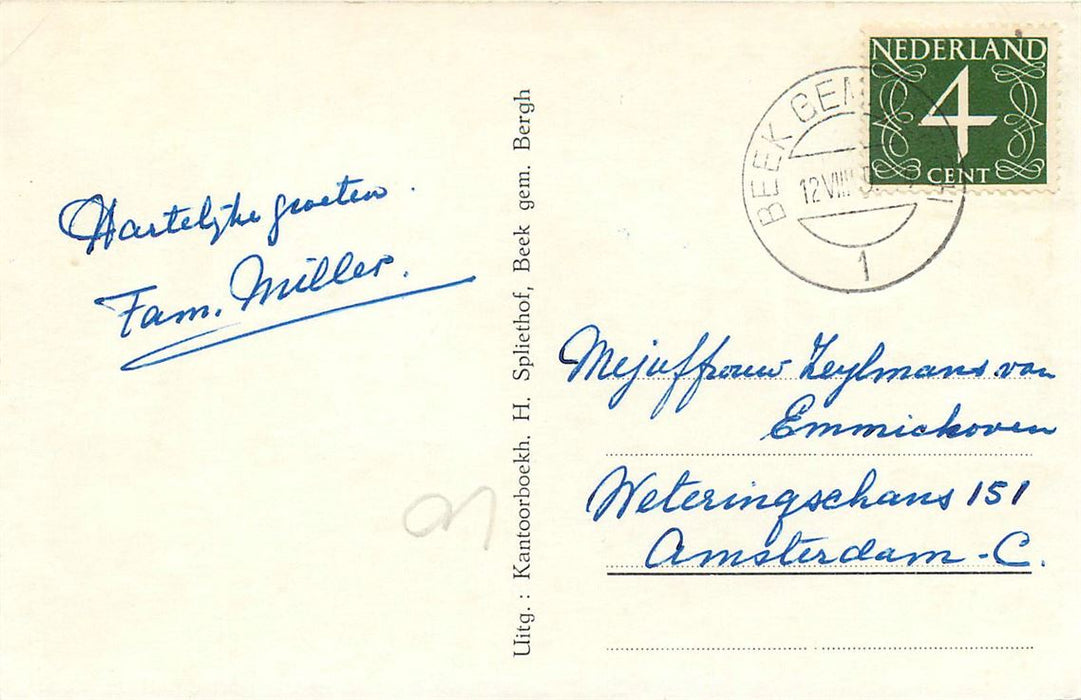 Hartelijke groeten.
Fam. Miller.
Uitg.: Kantoorboekh. H. Spliethof, Beek gem. Bergh
NEDERLAND
4
CENT
BEEK GEM
12 VIII
1
Mejuffrouw Zeylmans van
Emmichoven
Weteringschans 151
Amsterdam-C.